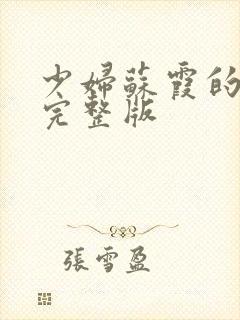 少婦蘇霞的
完整版
張雪盈